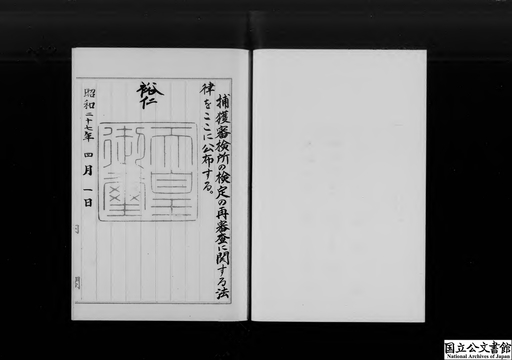 捕獲審検所の検定の再審査に関する法
律をここに公布する。
裕仁
天皇
御璽
昭和二十七年 四月 一日
国立公文書館
National Archives of Japan